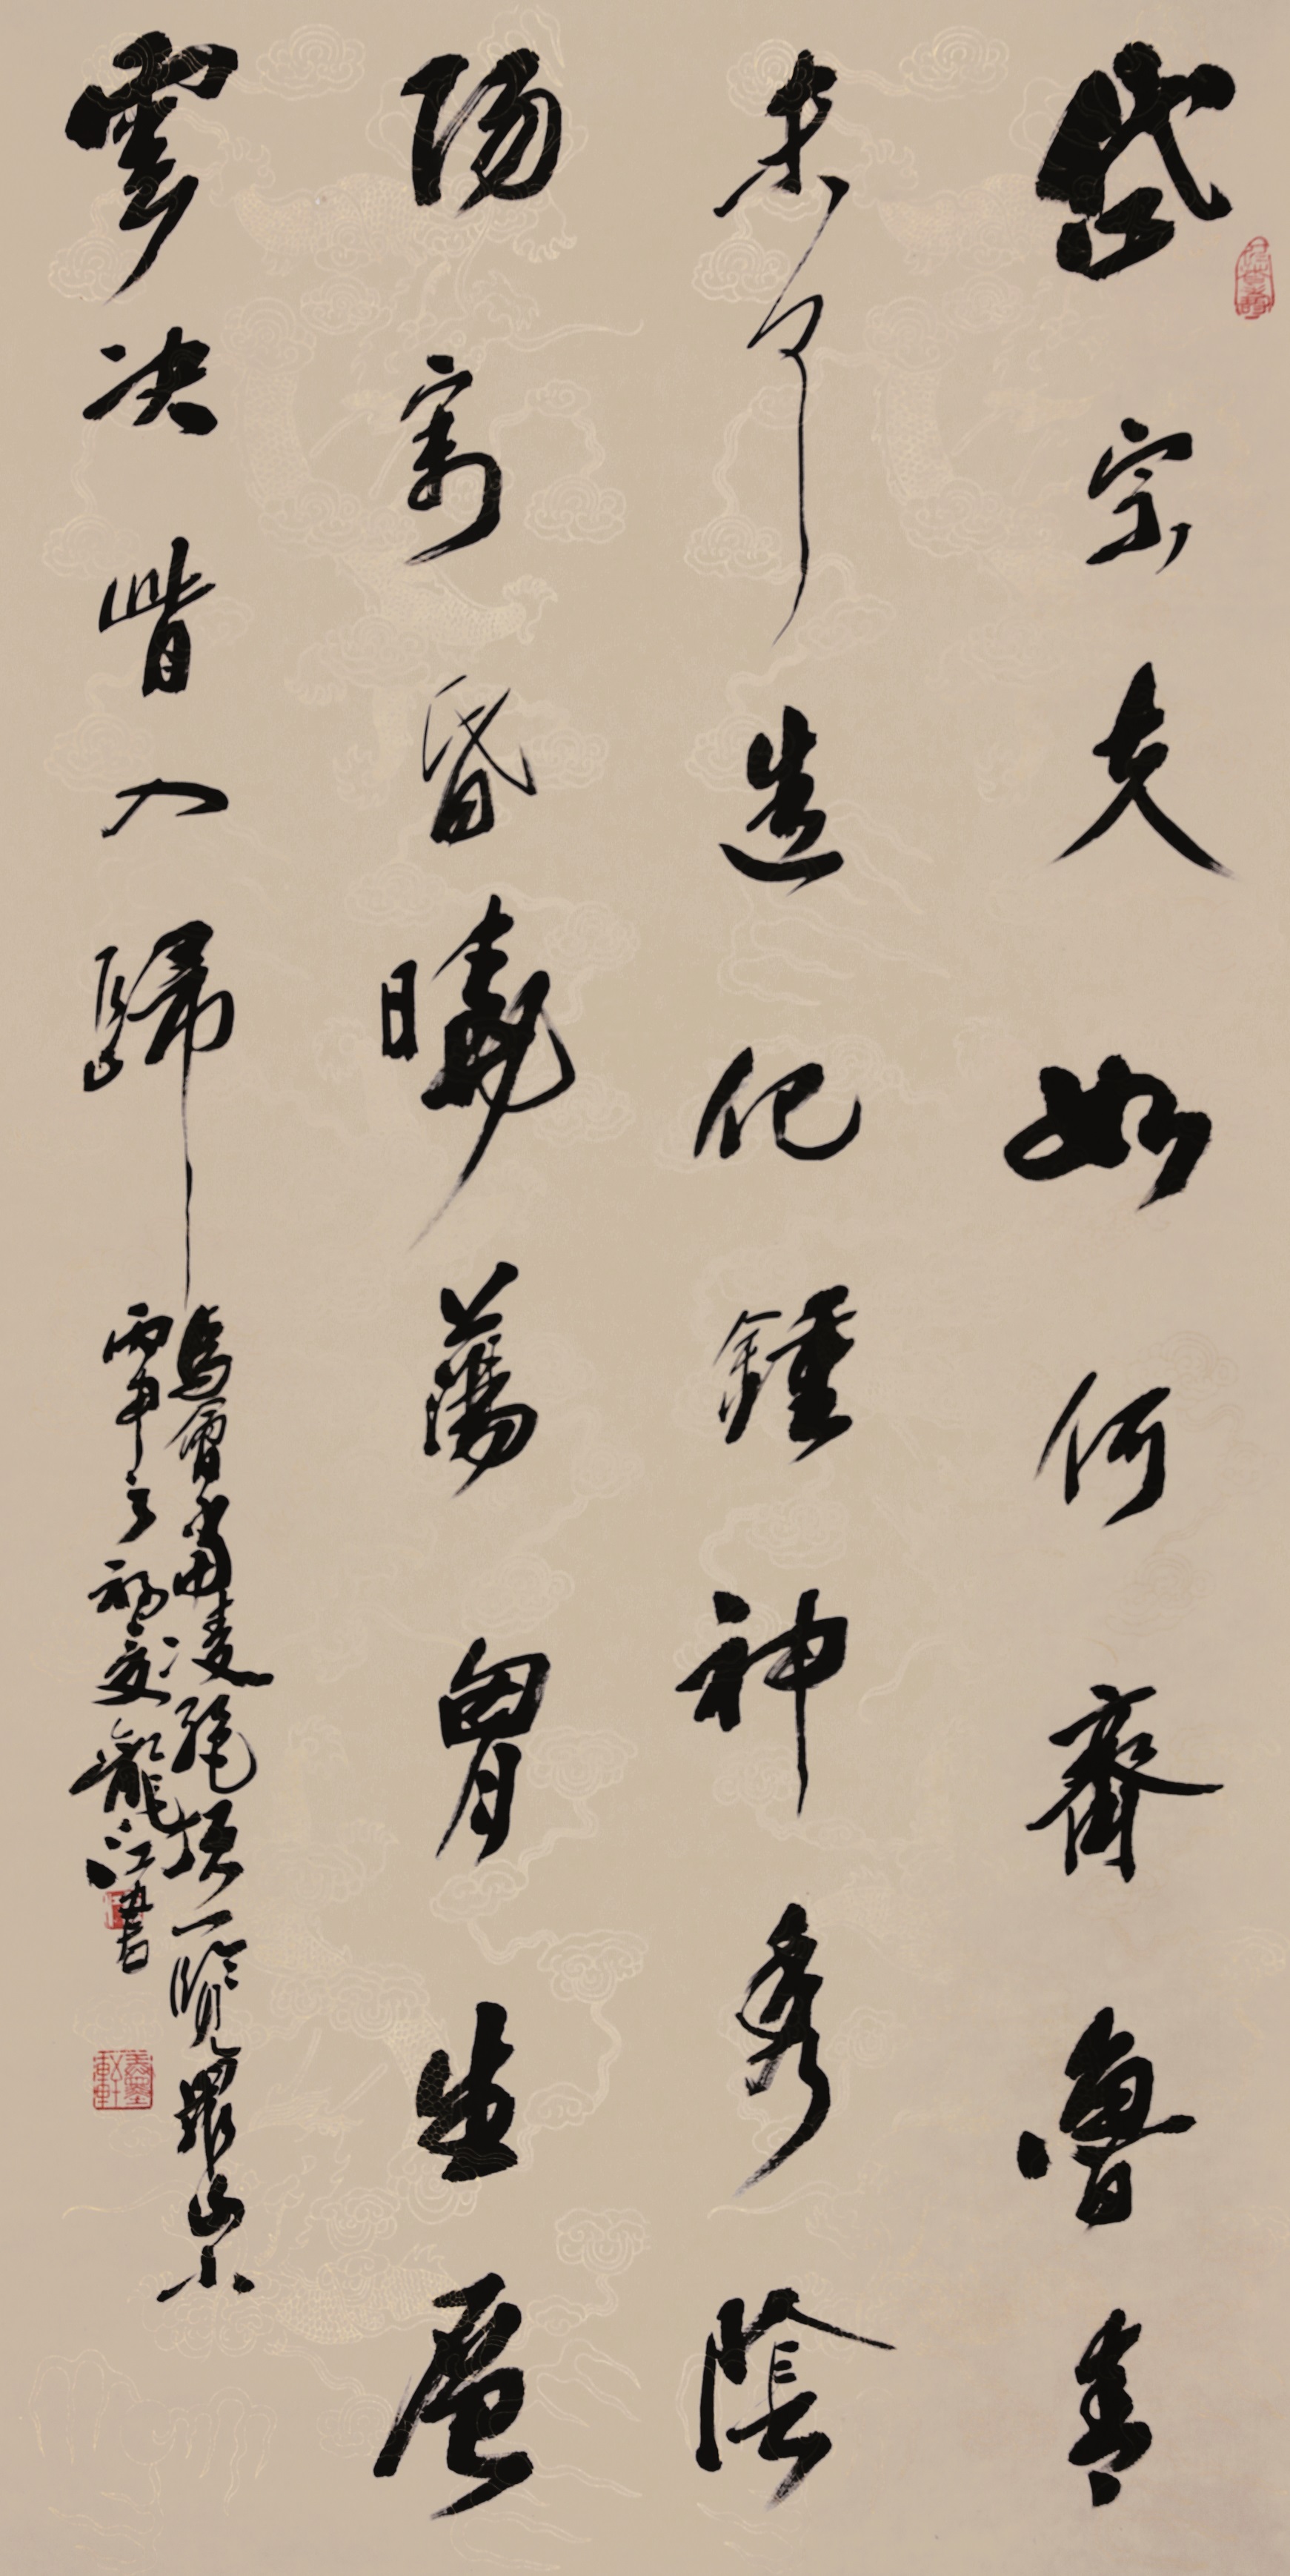 岱宗夫如何齊魯青
未了造化鍾神秀陰
陽割昏曉蕩胷生層
雲决眥入歸
鳥會當凌絕頂一覽眾山小
丙申之初夏龍江書